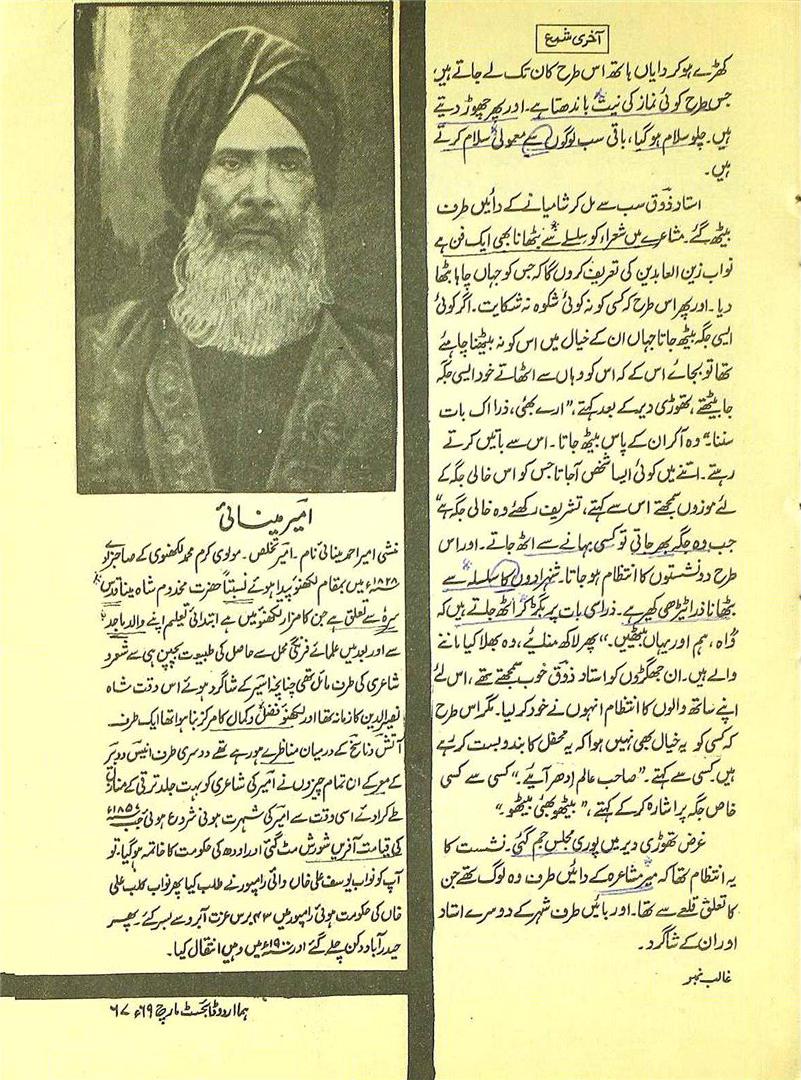 آخری شمع
کھڑے ہو کر دایاں ہاتھ اس طرح کان تک لے جاتے ہیں
جس طرح کوئی نماز کی نیت باندھتا ہے۔ اور پھر چھوڑ دیتے
ہیں۔ چلو سلام ہو گیا، باقی سب لوگوں سے معمولی سلام کرتے
ہیں۔
استاد ذوق سب سے مل کر شامیانے کے دائیں طرف
بیٹھ گئے۔ مشاعرے میں شعراء کو سلسلے سے بٹھانا بھی ایک فن ہے
نواب زین العابدین کی تعریف کروں گا کہ جس کو جہاں چاہا بٹھا
دیا۔ اور پھر اس طرح کہ کسی کو نہ کوئی شکوہ نہ شکایت۔ اگر کوئی
ایسی جگہ بیٹھ جاتا جہاں ان کے خیال میں اس کو نہ بیٹھنا چاہئے
تھا تو بجائے اس کے کہ اس کو وہاں سے اٹھاتے خود ایسی جگہ
جا بیٹھتے، تھوڑی دیر کے بعد کہتے، ”ارے بھئی، ذرا اک بات
سننا۔“ وہ آکر ان کے پاس بیٹھ جاتا۔ اس سے باتیں کرتے
رہتے۔ اتنے میں کوئی ایسا شخص آجاتا جس کو اس خالی جگہ کے
لئے موزوں سمجھتے اس سے کہتے، تشریف رکھئے وہ خالی جگہ ہے“
جب وہ جگہ بھر جاتی تو کسی بہانے سے اٹھ جاتے۔ اور اس
طرح دو نشستوں کا انتظام ہو جاتا۔ شہزادوں کا سلسلہ سے
بٹھانا ذرا ٹیڑھی کھیر ہے۔ ذرا سی بات پر بگڑ کر اٹھ جاتے ہیں کہ
”واہ، ہم اور یہاں بیٹھیں۔“ پھر لاکھ منائیے، وہ بھلا کیا ماننے
والے ہیں۔ ان جھگڑوں کو استاد ذوق خوب سمجھتے تھے، اس لئے
اپنے ساتھ والوں کا انتظام انہوں نے خود کر لیا۔ مگر اس طرح
کہ کسی کو یہ خیال بھی نہیں ہوا کہ یہ محفل کا بندوبست کر رہے
ہیں۔ کسی سے کہتے۔ ”صاحب عالم ادھر آیئے۔“ کسی سے کسی
خاص جگہ پر اشارہ کر کے کہتے، ”بیٹھو بھئی بیٹھو۔“
غرض تھوڑی دیر میں پوری مجلس جم گئی۔ نشست کا
یہ انتظام تھا کہ میر مشاعرہ کے دائیں طرف وہ لوگ تھے جن
کا تعلق قلعے سے تھا۔ اور بائیں طرف شہر کے دوسرے استاد
اور ان کے شاگرد۔
غالب نمبر
امیر مینائی
منشی امیر احمد مینائی نام۔ امیر تخلص۔ مولوی کرم محمد لکھنوی کے صاحبزادے
۱۸۲۸ء میں بمقام لکھنؤ پیدا ہوئے نسبتاً حضرت مخدوم شاہ مینا قدس
سرہ سے تعلق ہے جن کا مزار لکھنؤ میں ہے ابتدائی تعلیم اپنے والد ماجد
سے اور بعد میں علمائے فرنگی محل سے حاصل کی طبیعت بچپن ہی سے شعر و
شاعری کی طرف مائل تھی چنانچہ اسیر کے شاگرد ہوئے اس وقت شاہ
نصیرالدین کا زمانہ تھا اور لکھنؤ فضل و کمال کا مرکز بنا ہوا تھا ایک طرف
آتش و ناسخ کے درمیان مناظرے ہو رہے تھے دوسری طرف انیس و دبیر
کے معرکے ان تمام چیزوں نے امیر کی شاعری کو بہت جلد ترقی کے منازل
طے کرا دئے اسی وقت سے امیر کی شہرت ہونی شروع ہوئی جب ۱۸۵۶ء
کی قیامت آفریں شورش مٹ گئی اور اودھ کی حکومت کا خاتمہ ہو گیا۔ تو
آپ کو نواب یوسف علی خاں والئی رامپور نے طلب کیا پھر نواب کلب علی
خاں کی حکومت ہوئی رامپور میں ۴۳ برس عزت آبرو سے بسر کئے۔ پھر
حیدرآباد دکن چلے گئے اور ۱۹۰۰ء میں وہیں انتقال کیا۔
ہما اردو ڈائجسٹ مارچ ۶۹ء ۶۷